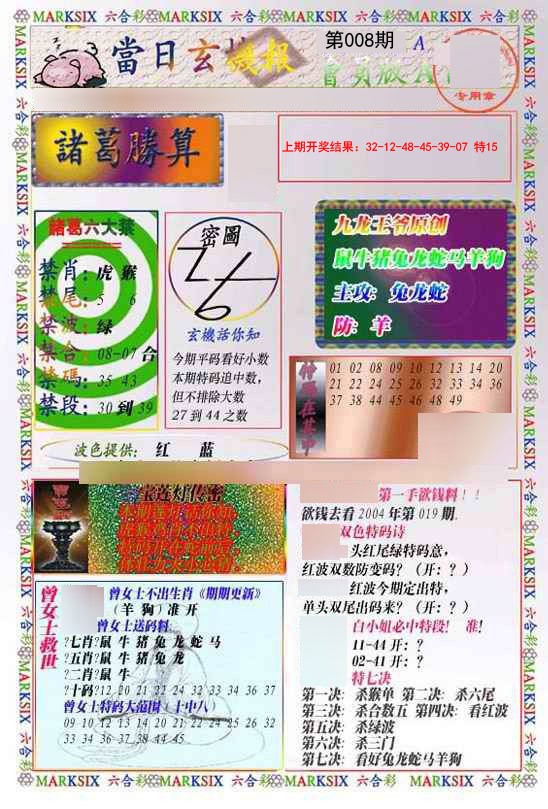 MARKSIX 六合彩 MARKSIX 六合彩 MARKSIX 六合彩 MARKSIX 六合彩
當日玄機報
第008期
會員版A
专用章
諸葛勝算
上期开奖结果：32-12-48-45-39-07 特15
諸葛六大禁
禁肖：虎 猴
禁尾：5 6
禁波：绿
禁合：08-07 合
禁碼：35 43
禁段：30 到 39
密圖
玄機話你知
今期平码看好小数
本期特码追中数，
但不排除大数
27 到 44 之数
九龙王爷原创
鼠牛猪兔龙蛇马羊狗
主攻：兔龙蛇
防：羊
01 02 08 09 10 12 13 14 20
21 22 24 25 26 32 33 34 36
37 38 44 45 46 48 49
波色提供：红 蓝
宝莲灯传密
第一手欲钱料！！
欲钱去看2004年第019期.
双色特码诗
头红尾绿特码意，
红波双数防变码？（开：？）
红波今期定出特，
单头双尾出码来？（开：？）
白小姐必中特段！ 准！
11-44 开：？
02-41 开：？
特七决
第一决：杀猴单 第二决：杀六尾
第三决：杀合数五 第四决：看红波
第五决：杀绿波
第六决：杀三门
第七决：看好兔龙蛇马羊狗
曾女士救世
曾女士不出生肖《期期更新》
（羊 狗）准 开
曾女士送码料
?七肖?鼠 牛 猪 兔 龙 蛇 马
?五肖?鼠 牛 猪 兔 龙
?二肖?鼠 牛
?十码?12 20 21 22 24 32 33 34 36 37
曾女士特码大范围（十中八）
09 10 12 13 14 20 21 22 24 25 26 32
33 34 36 37 38 44 45
MARKSIX 六合彩 MARKSIX 六合彩 MARKSIX 六合彩 MARKSIX 六合彩